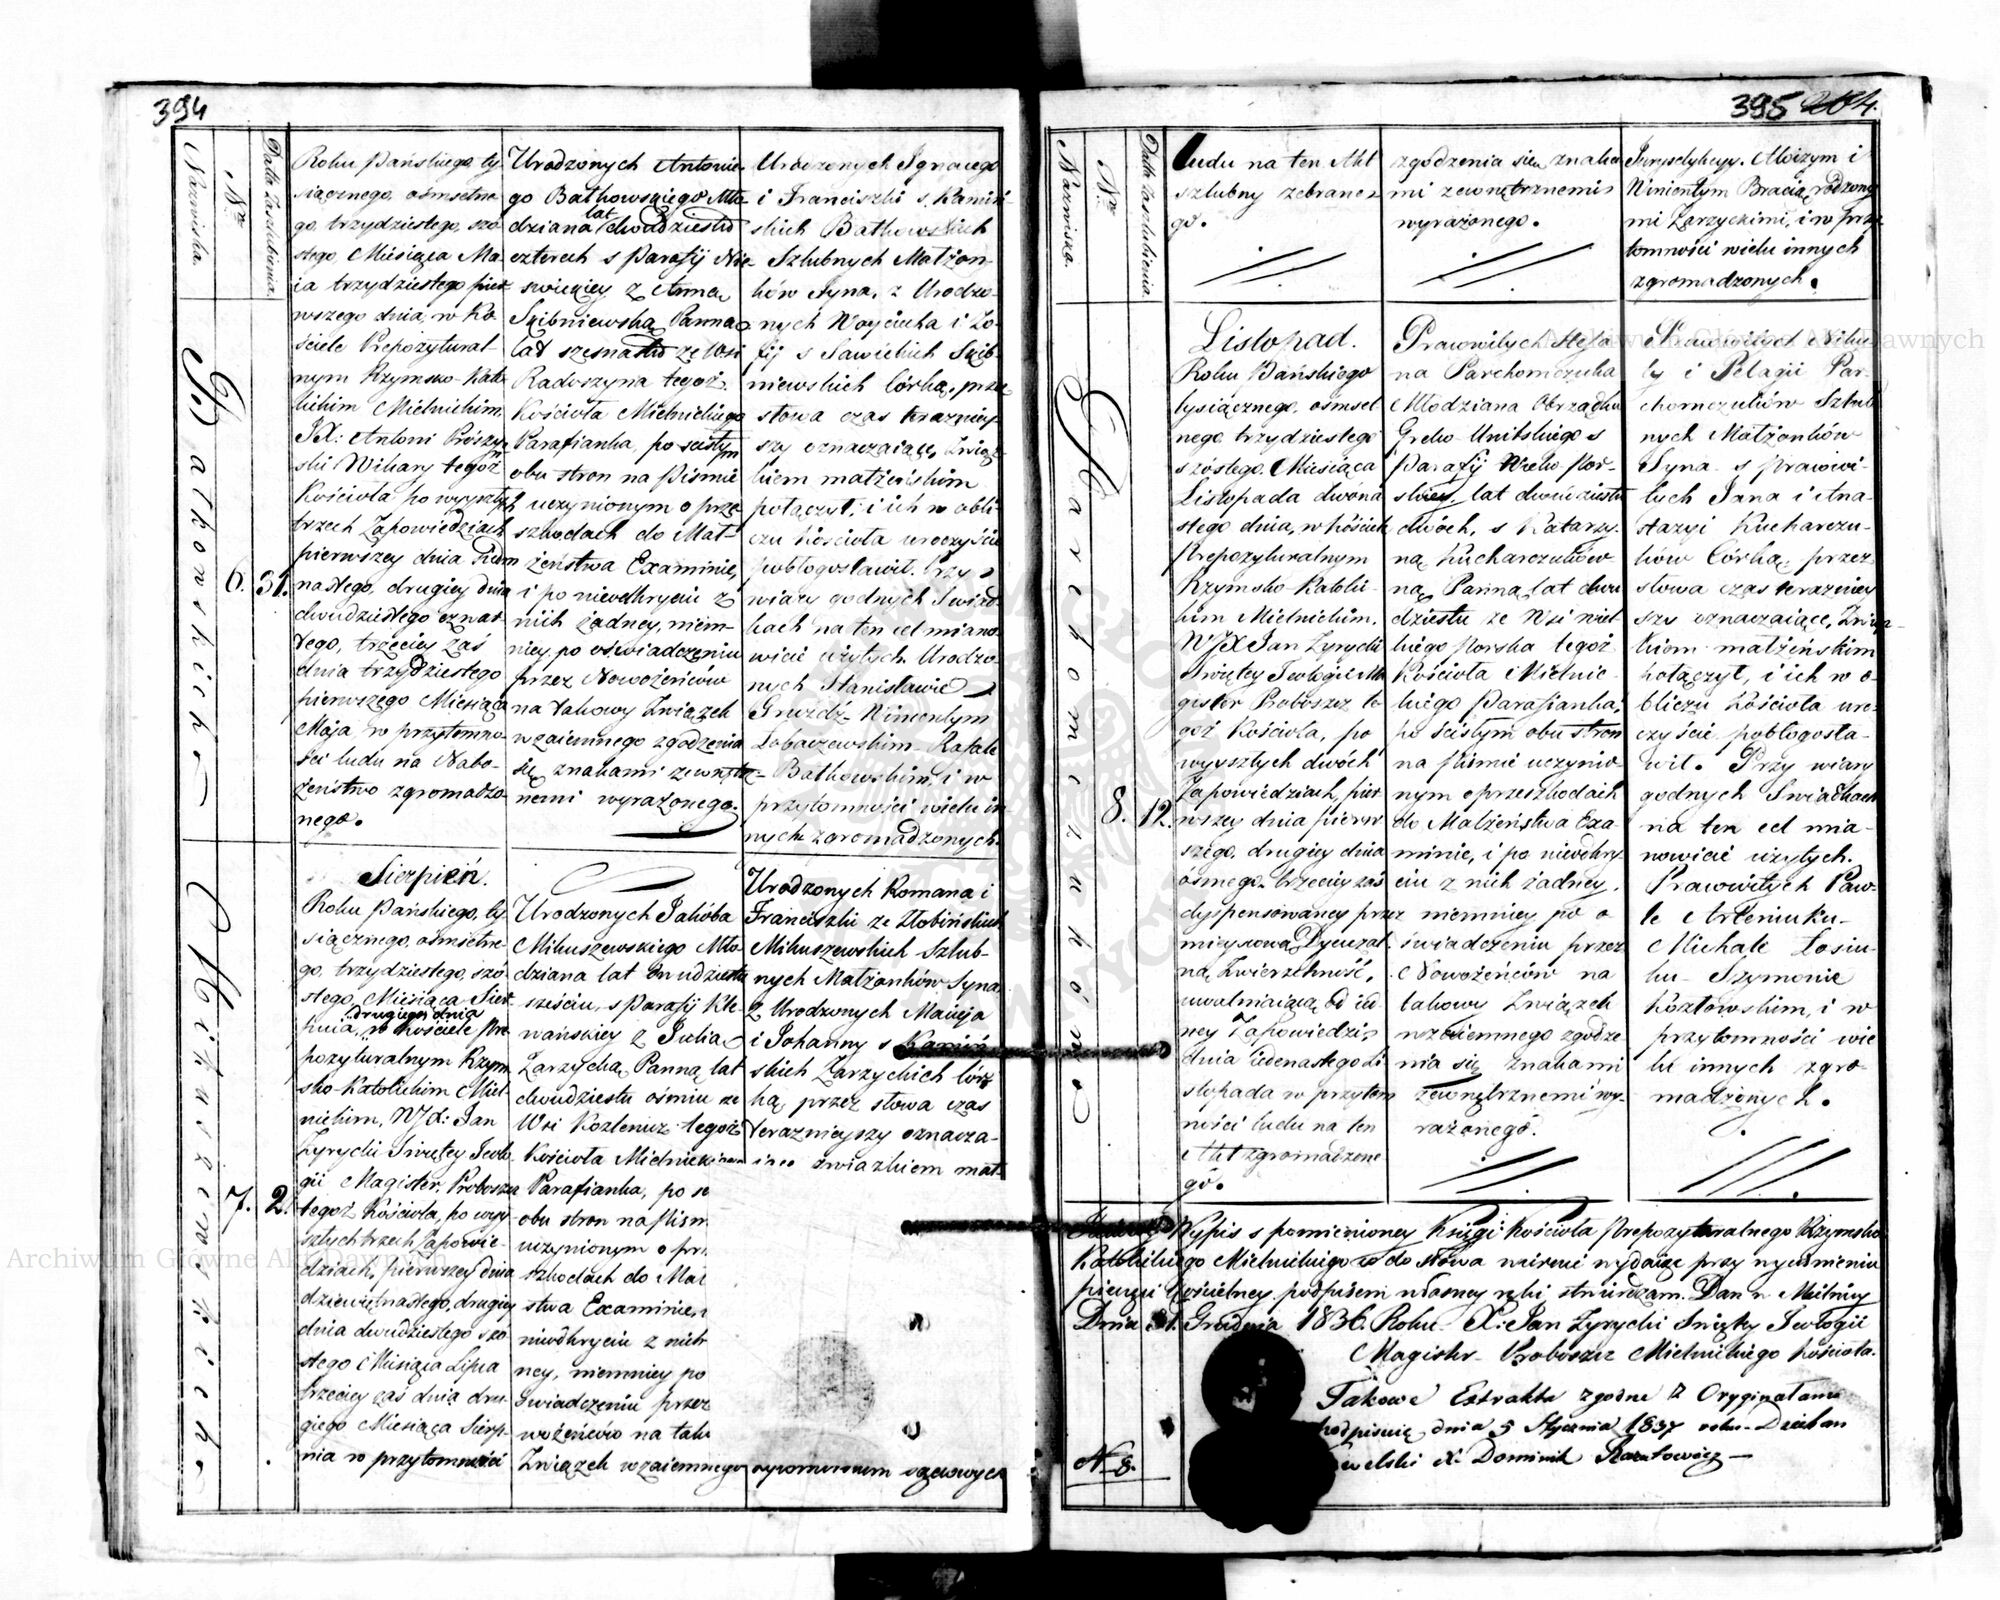 394
Nazwiska.
Nro
Datta Zaszlubienia.
Batkowskich
6.
31.
Roku Pańskiego, ty-
siącznego, osmsetne-
go, trzydziestego, szó-
stego, Miesiąca Ma-
ia trzydziestego pier
wszego dnia, w Ko-
ściele Prepozytural-
nym Rzymsko-Kato
lickim Mielnickim.
JX: Antoni Prószyń
ski Wikary tegoż
Kościoła po wyszłych
trzech Zapowiedziach
pierwszey dnia
nastego, drugiey dnia
dwudziestego czwar-
tego, trzeciey zaś
dnia trzydziestego
pierwszego Miesiąca
Maja w przytomno-
ści ludu na Nabo-
żeństwo zgromadzo-
nego.
Urodzonych Antonie-
go Batkowskiego Mło-
dziana lat dwudziestu
czterech s Parafij Nie-
swickiey z Anną
Skibniewską Panną
lat szesnastu ze Wsi
Radoszyna tegoż
Kościoła Mielnickiego
Parafianka, po scisłym
obu stron na Piśmie
uczynionym o prze-
szkodach do Mał-
żeństwa Examinie,
i po nieodkryciu z
nich żadney, niem-
niey po oświadczeniu
przez Nowożeńców
na takowy Związek
wzaiemnego zgodzenia
się znakami zewnętrz-
nemi wyrażonego.
Urodzonych Ignacego
i Franciszki s Kamiń-
skich Batkowskich
Szlubnych Małżon-
ków Syna, z Urodzo-
nych Woyciecha i Zo-
fij s Sawickich Skib-
niewskich Córką, przez
słowa czas teraźniey-
szy oznaczaiące, Związ-
kiem małżeńskim
połączył, i ich w obli-
czu Kościoła uroczyście
pobłogosławił. Przy
wiary godnych Świad-
kach na ten cel miano-
wicie użytych. Urodzo-
nych Stanisławie
Gwiźdź- Wincentym
Łobaczewskim- Rafale
Batkowskim, i w
przytomności wielu in-
nych zgromadzonych.
Mikuszewskich
7.
2.
Sierpień.
Roku Pańskiego, ty-
siącznego, osmsetne-
go, trzydziestego, szó-
stego, Miesiąca Sier-
pnia, drugiego dnia w Kościele Pre-
pozyturalnym Rzym-
sko-Katolickim Miel-
nickim, WJX: Jan
Zyrycki Świętey Teolo-
gii Magister, Proboszcz
tegoż Kościoła, po wy-
szłych trzech Zapowie-
dziach, pierwszey dnia
dziewiętnastego, drugiey
dnia dwudziestego szó-
stego Miesiąca Lipca
trzeciey zaś dnia dru-
giego Miesiąca Sierp-
nia w przytomności
Urodzonych Jakóba
Mikuszewskiego Mło-
dziana lat dwudziestu
sześciu, s Parafij Kle-
wańskiey z Julią
Zarzycką Panną lat
dwudziestu ośmiu ze
Wsi Kozlenicz tegoż
Kościoła Mielnick
Parafianka, po sc
obu stron na Pism
uczynionym o prz
szkodach do Mał
stwa Examinie,
nieodkryciu z nich
ney, niemniey po
świadczeniu przez
wożeńców na tako
Związek wzaiemnego
Urodzonych Romana i
Franciszki ze Złobińskich
Mikuszewskich Szlub-
nych Małżonków Syna
z Urodzonych Macieja
i Johanny s Kamiń
skich Zarzyckich Cór-
ką, przez słowa czas
teraznieyszy oznacza-
iące związkiem mał-
395
204.
Nazwiska.
Nro
Datta Zaszlubienia.
ludu na ten Akt
szlubny zebrane-
go.
zgodzenia sięu znaka
mi zewnętrznemi
wyrażonego.
Jurysdykcyy. Aloizym i
Wincentym Bracią rodzony
mi Zarzyckimi, i w przy
tomności wielu innych
zgromadzonych.
Parchomczuków
8.
12.
Listopad.
Roku Pańskiego
tysiącznego, osmset-
nego, trzydziestego
szóstego, Miesiąca
Listopada dwóna
stego dnia, w Kościele
Prepozyturalnym
Rzymsko-Katolic-
kim Mielnickim,
WJX Jan Zyrycki
Świętey Teologii Ma
gister Proboszcz te
goż Kościoła, po
wyszłych dwóch
Zapowiedziach, pier
wszey dnia pierw
szego, drugiey dnia
ósmego, trzeciey zaś
dyspensowaney przez
mieyscową Dyecezal-
ną Zwierzchność,
uwalniaiącą od ied-
ney Zapowiedzi,
dnia iedenastego Li-
stopada w przytom
ności ludu na ten
Akt zgromadzone
go.
Prawowitych Stefa
na Parchomczuka
Młodziana Obrządku
Greko-Unitskiego s
Parafij Wielko-Hor-
skiey, lat dwudziestu
dwóch, s Katarzy-
ną Kucharczuków-
ną Panną lat dwu
dziestu ze Wsi wiel
kiego Horska tegoż
Kościoła Mielnic-
kiego Parafianka,
po ścisłym obu stron
na piśmie uczynio-
nym o przeszkodach
do Małżeństwa Exa-
minie, i po nieodkry-
ciu z nich żadney,
niemniey po o-
świadczeniu przez
Nowożeńców na
takowy Związek
wzaiemnego zgodze-
nia się znakami
zewnętrznemi wy-
rażonego.
Prawowitych Niki-
ty i Pelagii Par-
chomczuków Szlub
nych Małżonków
Syna, s prawowi-
tych Jana i Ana-
stazyi Kucharczu-
ków Córką, przez
słowa czas teraźniey
szy oznaczaiące, Związ-
kiem małżeńskim
połączył, i ich w o-
bliczu Kościoła uro-
czyście pobłogosła-
wił. Przy wiary
godnych Świadkach
na ten cel mia-
nowicie użytych.
Prawowitych Paw-
le Arteniuku-
Michale Łosiu-
ku- Szymonie
Kozłowskim, i w
przytomności wie
lu innych zgro-
madzonych.
Wypis s pomienioney Księgi Kościoła Prepozyturalnego Rzymsko
Katolickiego Mielnickiego co do słowa wiernie wydaiąc przy wyciśnieniu
pieczęci Kościelney, podpisem własney ręki stwierdzam. Dan w Mielnicy
Dnia 31. Grudnia 1836. Roku. X: Jan Zyrycki Świętey Teologii
Magister- Proboszcz Mielnickiego Kościoła.
Takowe Extrakta zgodne z Oryginałami
podpisuię dnia 5 Stycznia 1837 roku- Dziekan
welski X. Dominik
N 8.
Archiwum Główne Akt Dawnych
Archiwum Główne Akt Dawnych